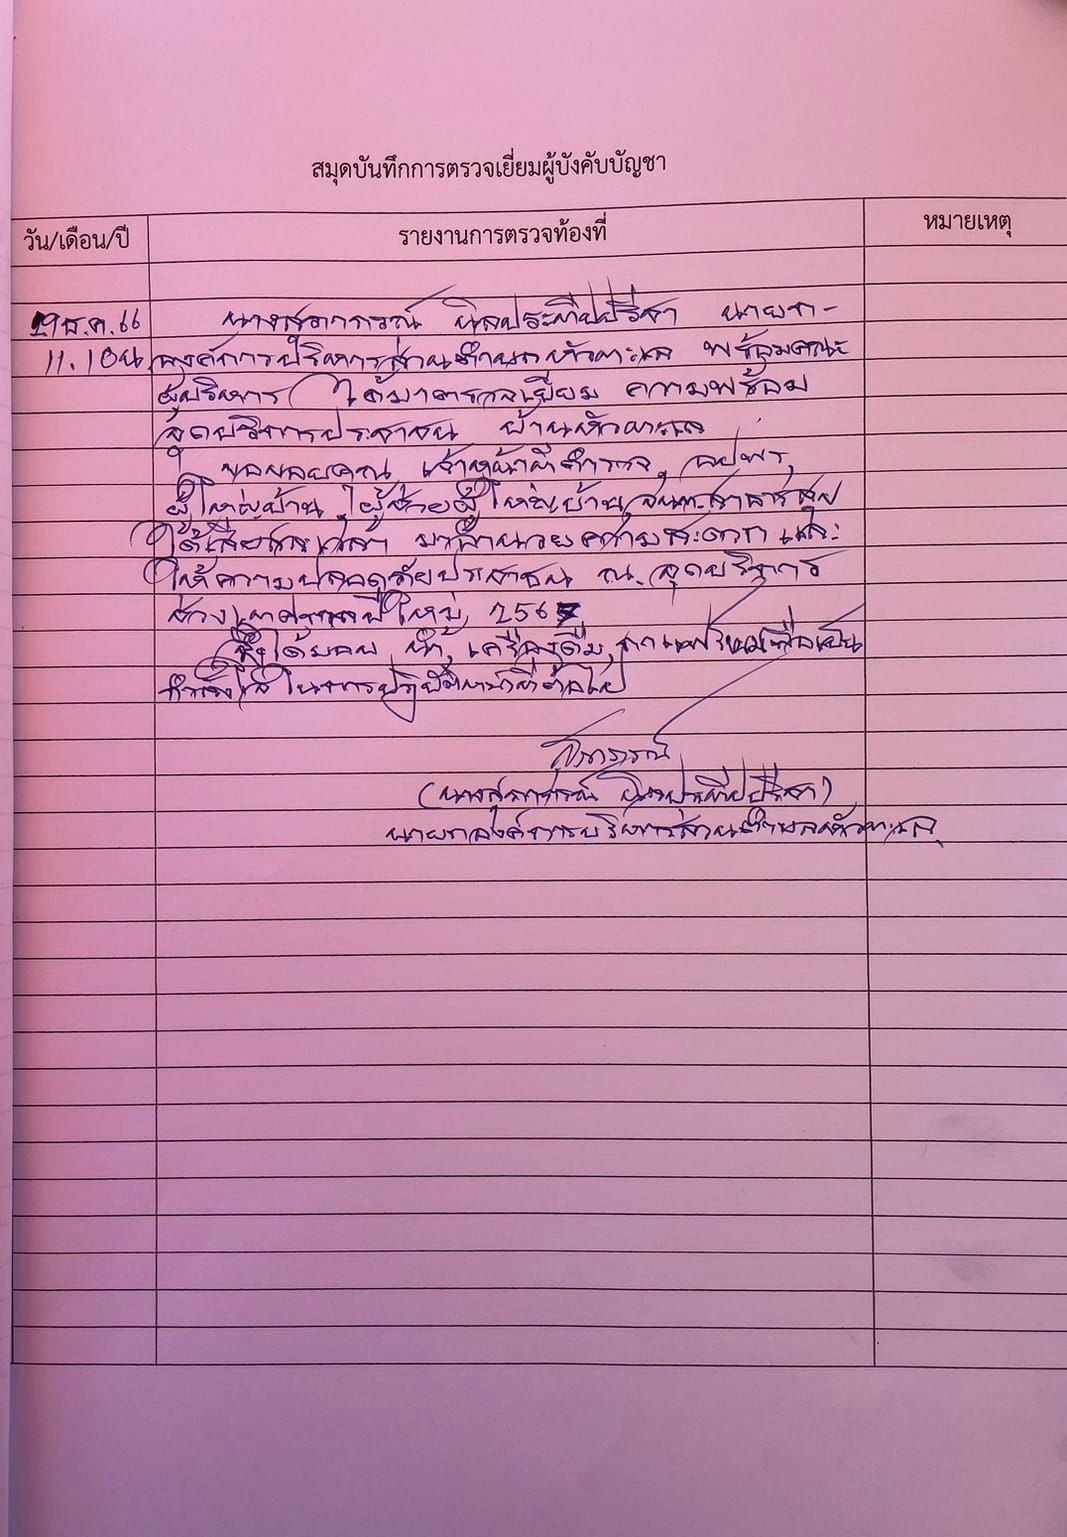 สมุดบันทึกการตรวจเยี่ยมผู้บังคับบัญชา
วัน/เดือน/ปี รายงานการตรวจท้องที่ หมายเหตุ
29 ธ.ค. 66 นางสุภาภรณ์ นิลประทีปปรีชา นายก-
11.10 น. องค์การบริหารส่วนตำบลหัวทะเล พร้อมคณะ
ผู้บริหาร ได้มาตรวจเยี่ยม ความพร้อม
จุดบริการประชาชน บ้านหัวทะเล
ขอขอบคุณ เจ้าหน้าที่ตำรวจ, อปพร,
ผู้ใหญ่บ้าน, ผู้ช่วยผู้ใหญ่บ้าน, จนท.สาธารสุข
ได้เสียสละเวลา มาอำนวยความสะดวก และ
ให้ความปลอดภัยประชาชน ณ. จุดบริการ
ช่วงเทศกาลปีใหม่ 2567
ซึ่งได้มอบ น้ำ, เครื่องดื่ม, เพื่อเป็น
กำลังใจ ในการปฏิบัติหน้าที่ต่อไป
สุภาภรณ์
(นางสุภาภรณ์ นิลประทีปปรีชา)
นายกองค์การบริหารส่วนตำบลหัวทะเล